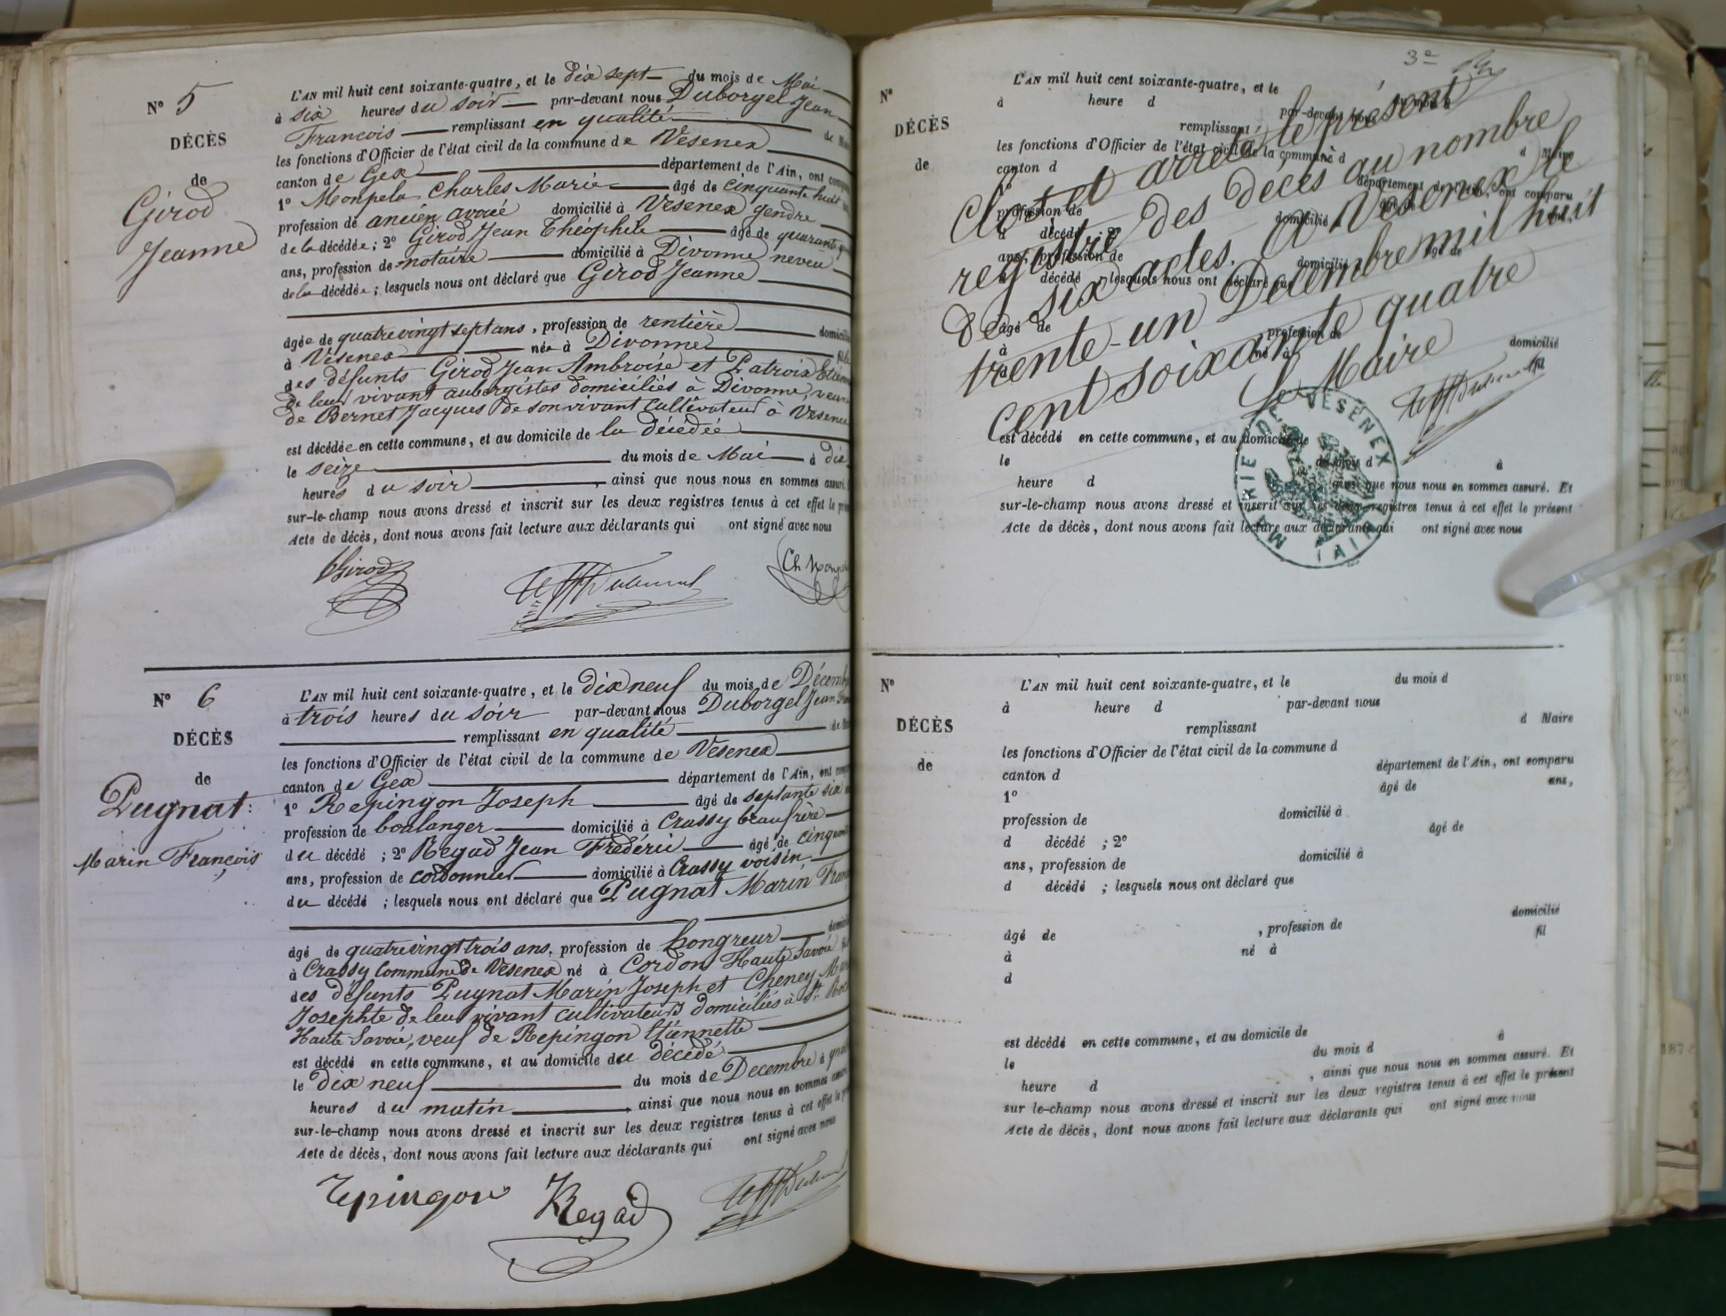 N° 5
DÉCÈS
de
Girod
Jeanne
L'AN mil huit cent soixante-quatre, et le dix sept du mois de Mai
à six heures du soir par-devant nous Duborgel Jean
François remplissant en qualité de
les fonctions d'Officier de l'état civil de la commune de Vésenex
canton de Gex département de l'Ain, ont
1° Monpela Charles Marie âgé de cinquante huit
profession de ancien avoué domicilié à Vésenex gendre
de la décédée ; 2° Girod Jean Théophile âgé de quarante
ans, profession de notaire domicilié à Divonne neveu
de la décédée ; lesquels nous ont déclaré que Girod Jeanne
âgée de quatre vingt sept ans, profession de rentière
à Vésenex née à Divonne
des défunts Girod Jean Ambroise et Patroix
de leur vivant aubergistes domiciliés à Divonne,
de Bernet Jacques de son vivant cultivateur à Vésenex
est décédée en cette commune, et au domicile de la décédée
le seize du mois de Mai à
heures du soir, ainsi que nous nous en sommes
sur-le-champ nous avons dressé et inscrit sur les deux registres tenus à cet effet le
Acte de décès, dont nous avons fait lecture aux déclarants qui ont signé avec nous
Girod
N° 6
DÉCÈS
de
Pugnat
Marin François
L'AN mil huit cent soixante-quatre, et le dix neuf du mois de
à trois heures du soir par-devant nous Duborgel Jean
remplissant en qualité de
les fonctions d'Officier de l'état civil de la commune de Vésenex
canton de Gex département de l'Ain, ont
1° Repingon Joseph âgé de septante six
profession de boulanger domicilié à Crassy beaufrère
du décédé ; 2° Regad Jean Frédéric âgé de
ans, profession de cordonnier domicilié à Crassy voisin
du décédé ; lesquels nous ont déclaré que Pugnat Marin
âgé de quatre vingt trois ans, profession de hongreur
à Crassy Commune de Vésenex né à Cordon Haute Savoie
des défunts Pugnat Marin Joseph et Cheney
Josephte de leur vivant cultivateurs domiciliés à St
Haute Savoie, veuf de Repingon Etiennette
est décédé en cette commune, et au domicile du décédé
le dix neuf du mois de Decembre à
heures du matin, ainsi que nous nous en sommes
sur-le-champ nous avons dressé et inscrit sur les deux registres tenus à cet effet le
Acte de décès, dont nous avons fait lecture aux déclarants qui ont signé avec nous
repingon Regad
3e
N°
DÉCÈS
de
L'AN mil huit cent soixante-quatre, et le
à heure d par-devant nous
remplissant d Maire
les fonctions d'Officier de l'état civil de la commune d
canton d département de l'Ain, ont comparu
1°
profession de domicilié
d décédé
ans, profession de domicilié
d décédé lesquels nous ont déclaré que
âgé de profession de domicilié
à né à
Clos et arrêté le présent
registre des décès au nombre
de six actes. A Vésenex le
trente-un Décembre mil huit
cent soixante quatre
Le Maire
MAIRIE DE VÉSENEX
(AIN)
est décédé en cette commune, et au domicile de
le du mois d à
heure d ainsi que nous nous en sommes assuré. Et
sur-le-champ nous avons dressé et inscrit sur les deux registres tenus à cet effet le présent
Acte de décès, dont nous avons fait lecture aux déclarants qui ont signé avec nous
N°
DÉCÈS
de
L'AN mil huit cent soixante-quatre, et le du mois d
à heure d par-devant nous
remplissant d Maire
les fonctions d'Officier de l'état civil de la commune d
canton d département de l'Ain, ont comparu
1° âgé de ans,
profession de domicilié à
d décédé ; 2° âgé de
ans, profession de domicilié à
d décédé ; lesquels nous ont déclaré que
âgé de , profession de domicilié
à né à fil
d
est décédé en cette commune, et au domicile de
le du mois d à
heure d , ainsi que nous nous en sommes assuré. Et
sur le-champ nous avons dressé et inscrit sur les deux registres tenus à cet effet le présent
Acte de décès, dont nous avons fait lecture aux déclarants qui ont signé avec nous